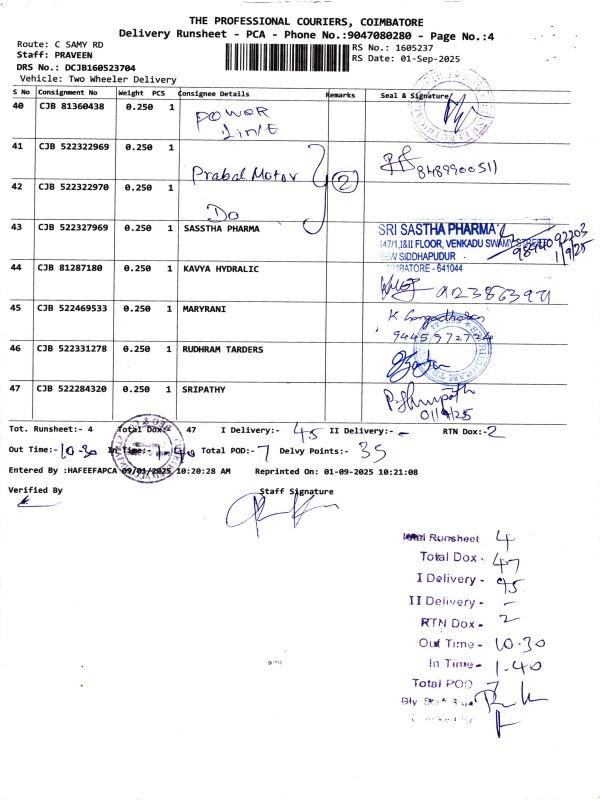 THE PROFESSIONAL COURIERS, COIMBATORE
Delivery Runsheet - PCA - Phone No.:9047080280 - Page No.:4
Route: C SAMY RD
Staff: PRAVEEN
DRS No.: DCJB160523704
Vehicle: Two Wheeler Delivery
RS No.: 1605237
RS Date: 01-Sep-2025
S No Consignment No Weight PCS Consignee Details Remarks Seal & Signature
40 CJB 81360438 0.250 1 POWER LINE
41 CJB 522322969 0.250 1 Prabal Motor 2 8489900511
42 CJB 522322970 0.250 1 Do
43 CJB 522327969 0.250 1 SASSTHA PHARMA
SRI SASTHA PHARMA
447/1,I&II FLOOR, VENKADU SWAMY
NEW SIDDHAPUDUR
COIMBATORE - 641044
9894092203
1/9/25
44 CJB 81287180 0.250 1 KAVYA HYDRALIC
45 CJB 522469533 0.250 1 MARYRANI
46 CJB 522331278 0.250 1 RUDHRAM TARDERS
47 CJB 522284320 0.250 1 SRIPATHY
01/9/25
Tot. Runsheet:- 4 Total Dox: 47 I Delivery:- 45 II Delivery:- - RTN Dox:- 2
Out Time:- 10-30 In Time:- 1-40 Total POD:- 7 Delvy Points:- 35
Entered By :HAFEEFAPCA 09/01/2025 10:20:28 AM Reprinted On: 01-09-2025 10:21:08
Verified By Staff Signature
Total Runsheet 4
Total Dox - 47
I Delivery - 45
II Delivery - -
RTN Dox - 2
Out Time - 10-30
In Time - 1-40
Total POD 7